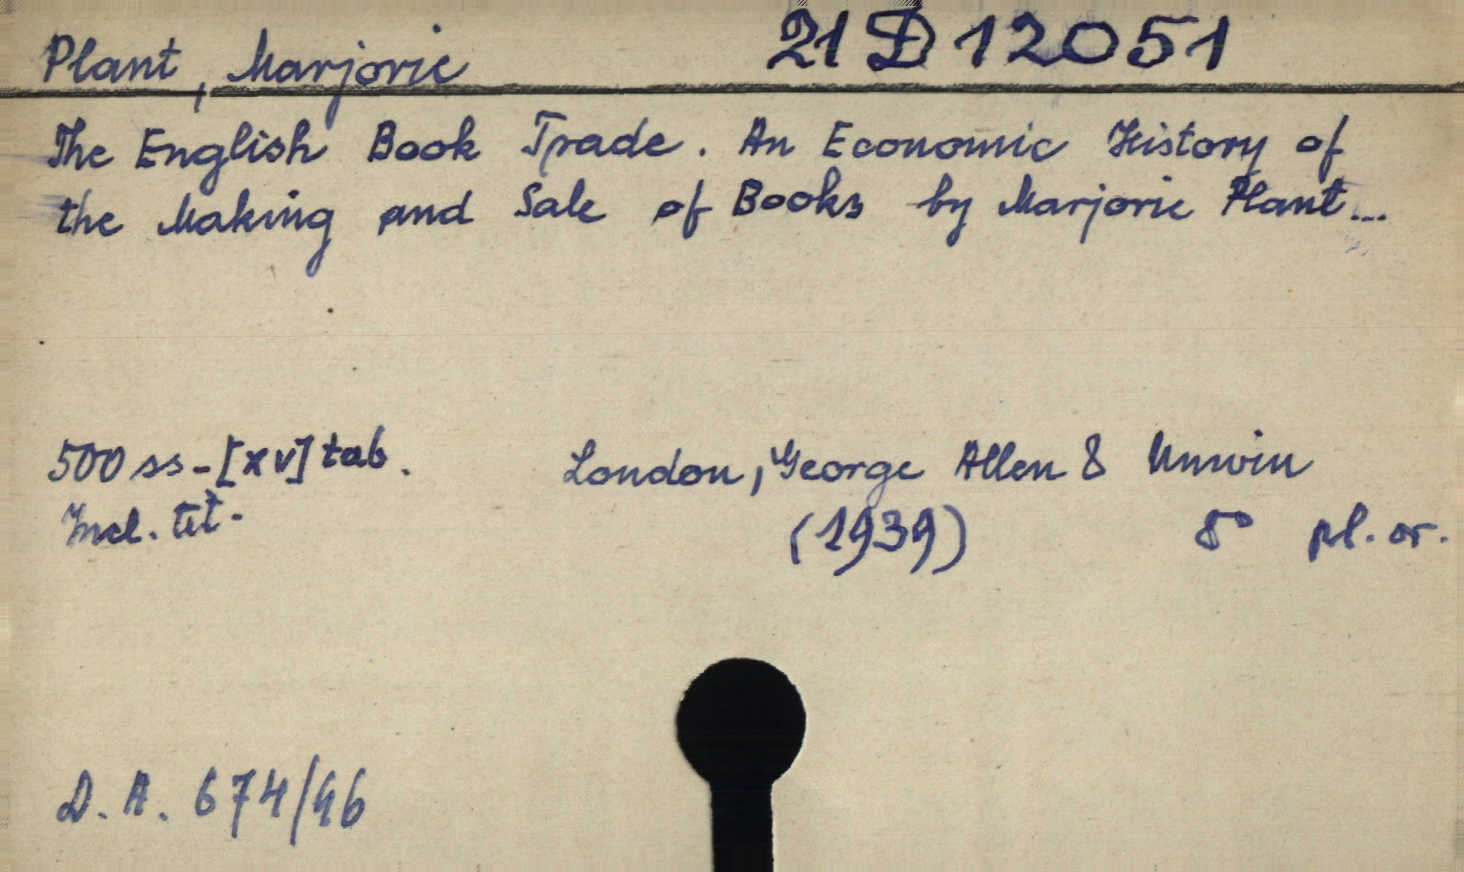 Plant, Marjorie 21 D 12051
The English Book Trade. An Economic History of
the Making and Sale of Books by Marjorie Plant...
500 ss - [xv] tab. London, George Allen & Unwin
Incl. tit. (1939) 8° pl. or.
D. A. 674/46